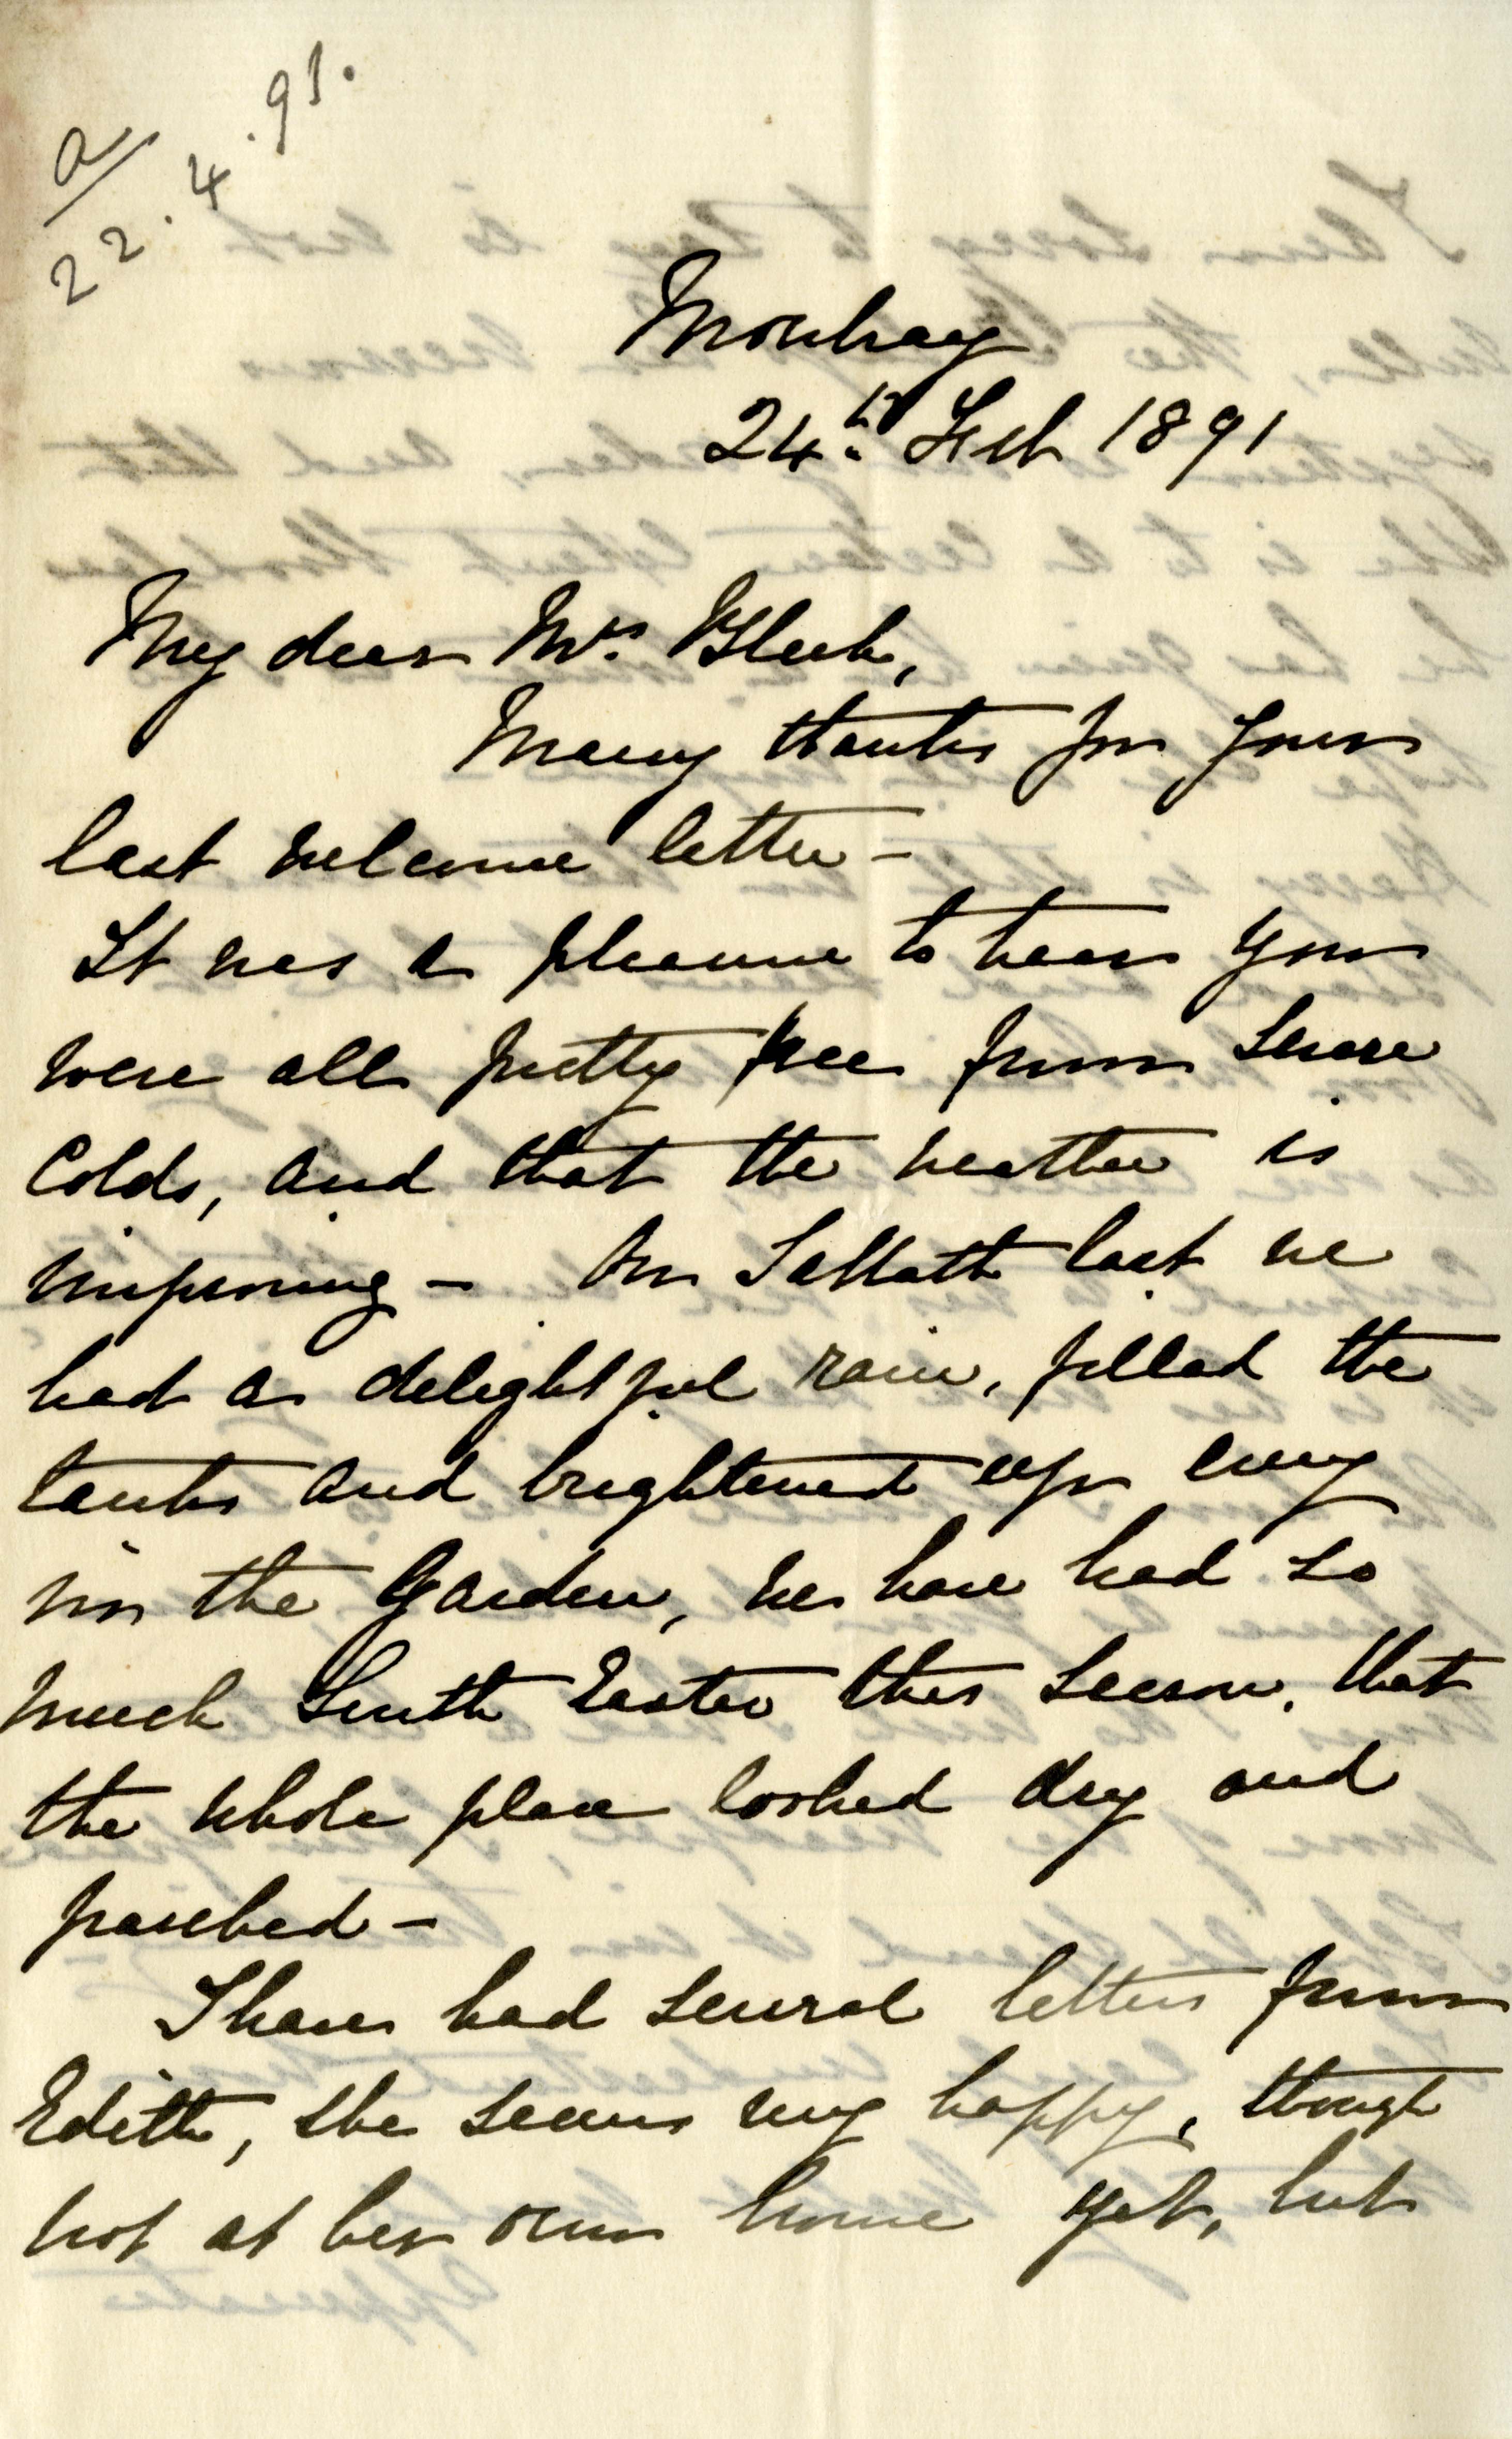 a/
22.4.91.
Mowbray
24th Feb 1891
My dear Mrs Bleek,
Many thanks for your
last welcome letter –
It was a pleasure to hear you
were all pretty free from severe
Colds, and that the weather is
improving – On Sabbath last we
had a delightful rain, filled the
tanks and brightened up every
in the Garden, we have had so
much South Easter this season, that
the whole place looked dry and
parched –
I have had several letters from
Edith, she seems very happy, though
not at her own home yet, but